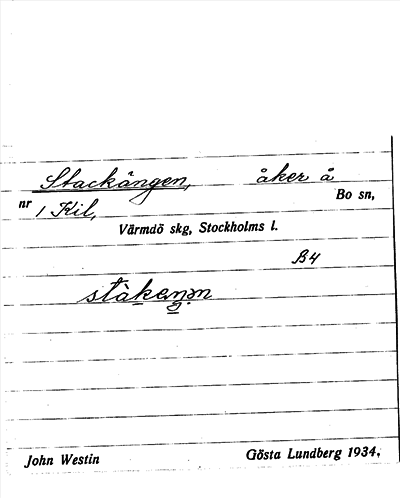 Stackängen, åker å
nr 1 Kil, Bo sn,
Värmdö skg, Stockholms l.
B4
John Westin Gösta Lundberg 1934.